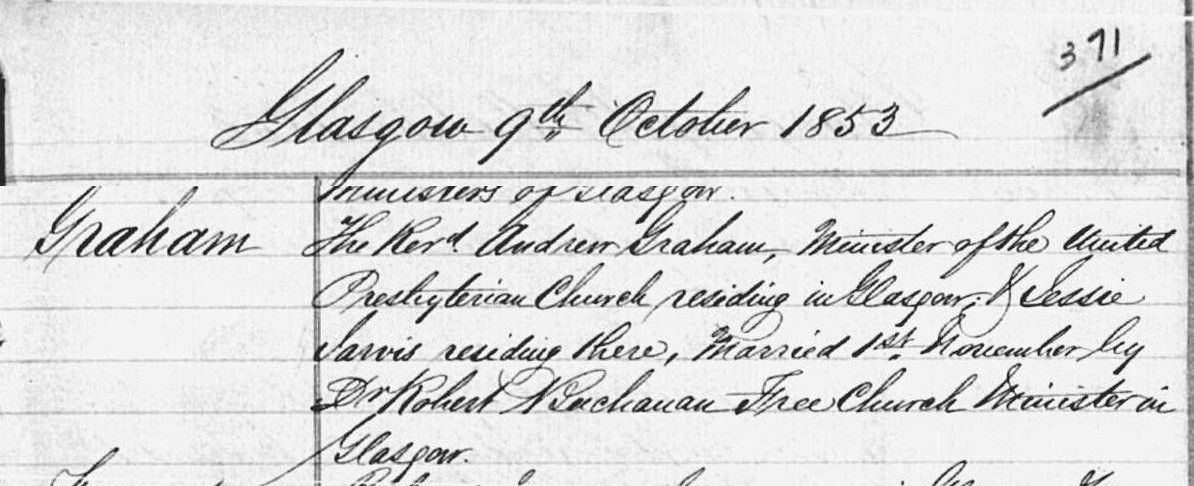 371
Glasgow 9th October 1853
Ministers of Glasgow.
Graham
The Revd Andrew Graham, Minister of the United
Presbyterian Church residing in Glasgow, & Jessie
Jarvis residing there, Married 1st November by
Dr Robert Buchanan Free Church Minister in
Glasgow.